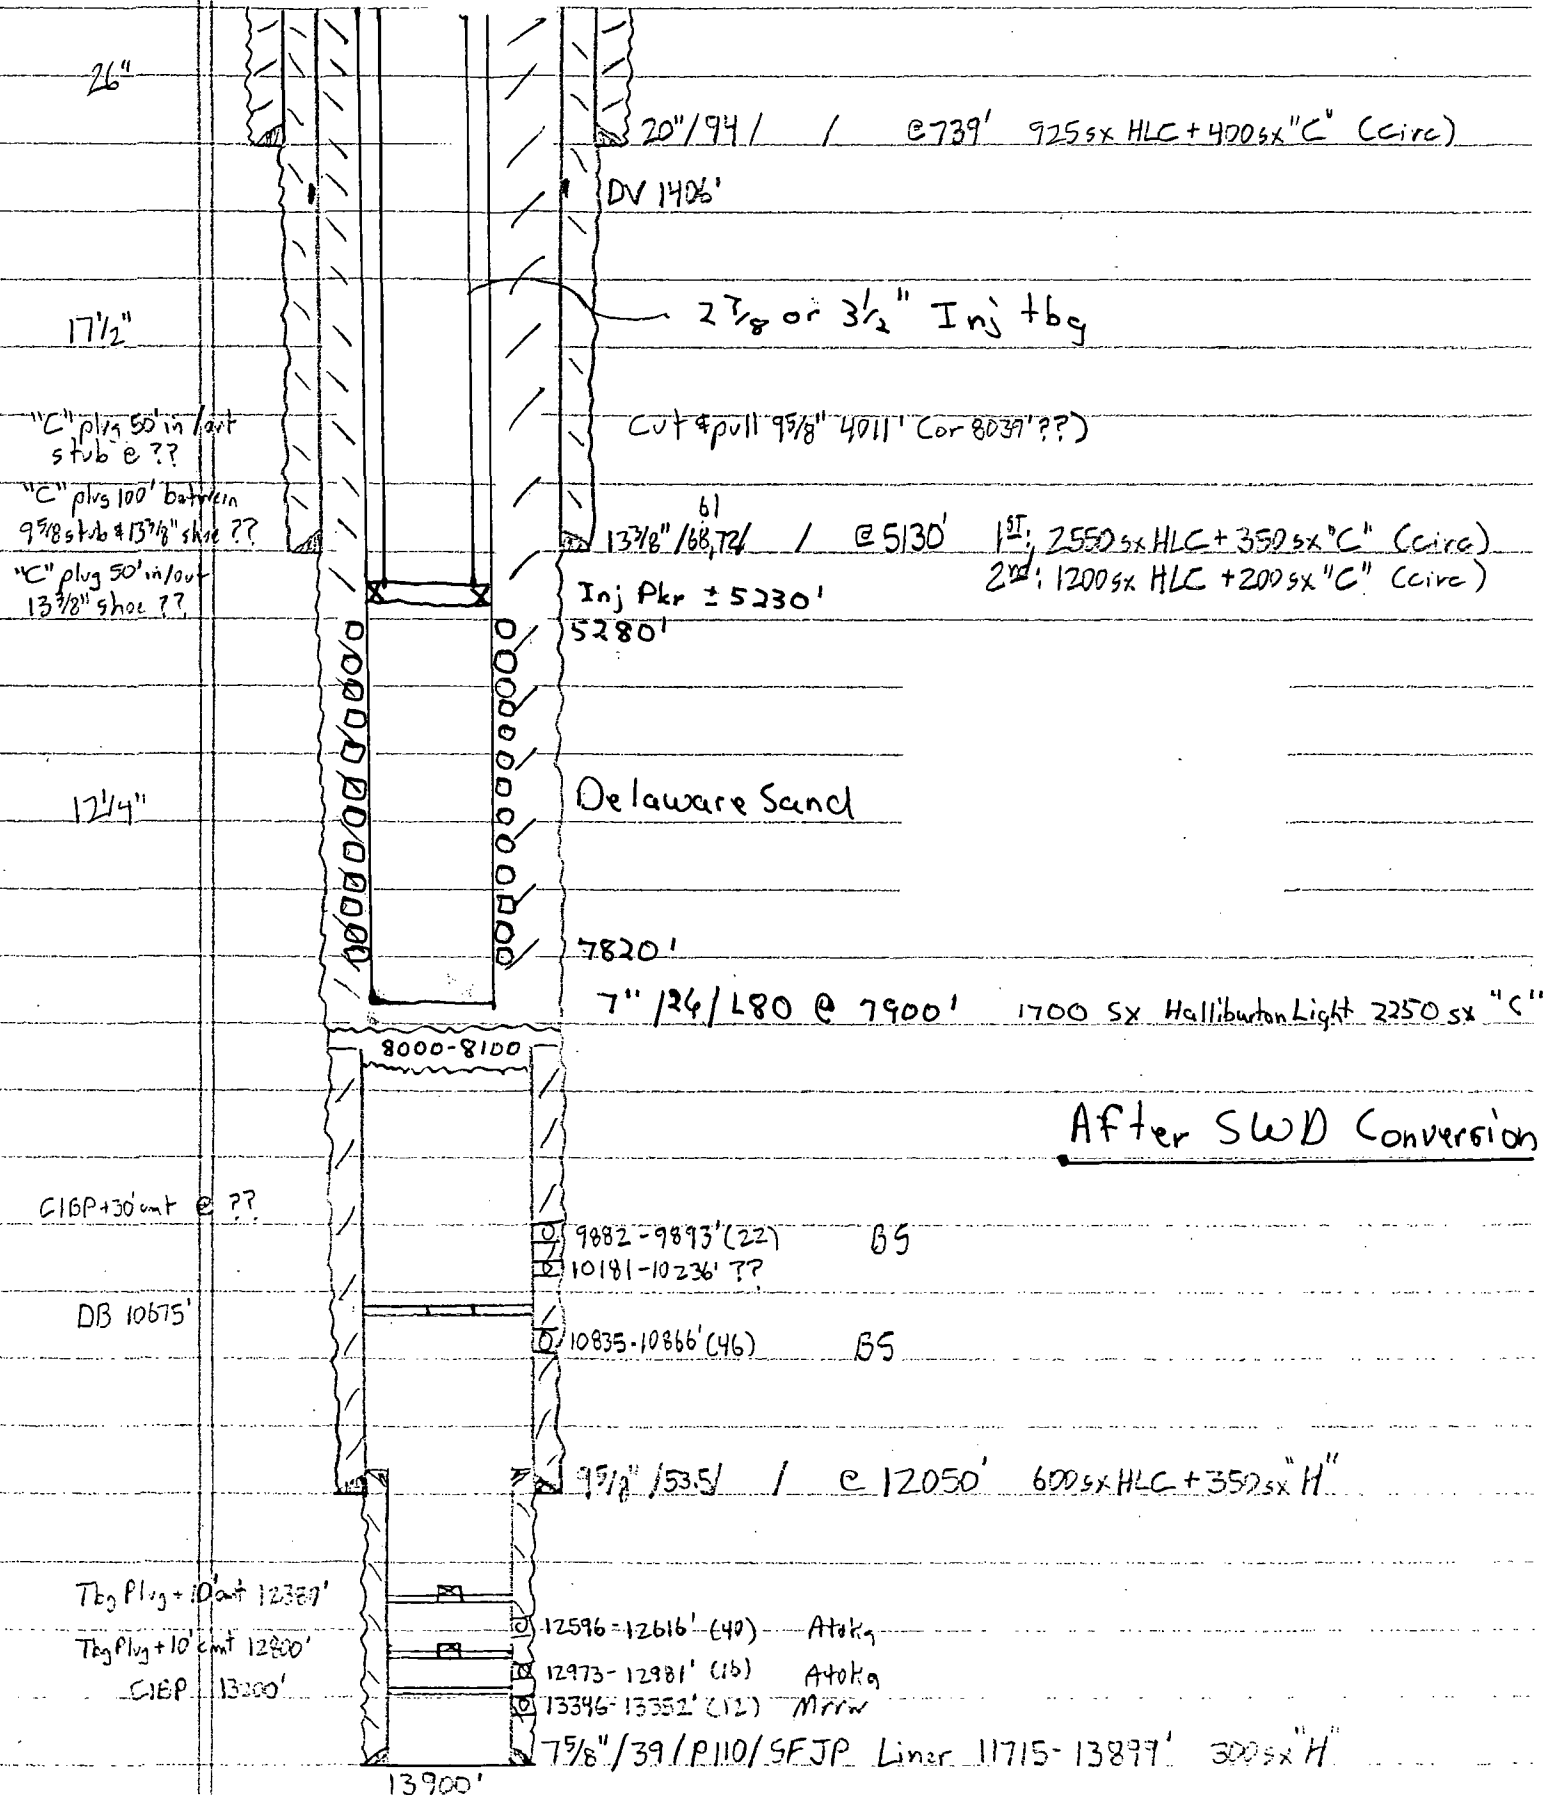 26"
20"/94/ / @739' 925sx HLC+400sx"C" (Circ)
DV 1406'
2 7/8 or 3 1/2" Inj tbg
17 1/2"
"C" plug 50' in/out
stub @ ??
Cut & pull 9 5/8" 4011' (or 8039'??)
"C" plug 100' between
9 5/8 stub & 13 3/8" shoe ??
61
13 3/8"/68,72/ / @5130' 1ST: 2550sx HLC+350sx"C" (circ)
2nd: 1200sx HLC+200sx"C" (circ)
"C" plug 50' in/out
13 3/8" shoe ??
Inj Pkr ± 5230'
5280'
12 1/4"
Delaware Sand
7820'
7"/26/L80 @ 7900' 1700 sx Halliburton Light 2250 sx "C"
8000-8100
After SWD Conversion
CIBP+30'cmt @ ??
9882-9893'(22) BS
10181-10236' ??
DB 10675'
10835-10866'(46) BS
9 5/8"/53.5/ / @ 12050' 600sx HLC+350sx"H"
Tbg Plug+10'cmt
12596-12616' (40) Atoka
Tbg Plug+10'cmt 12800'
12973-12981' Atoka
CIBP
13346-13352' (12) Mrrw
7 5/8"/39/P110/SFJP Liner 11715-13899' 300sx"H"
13900'